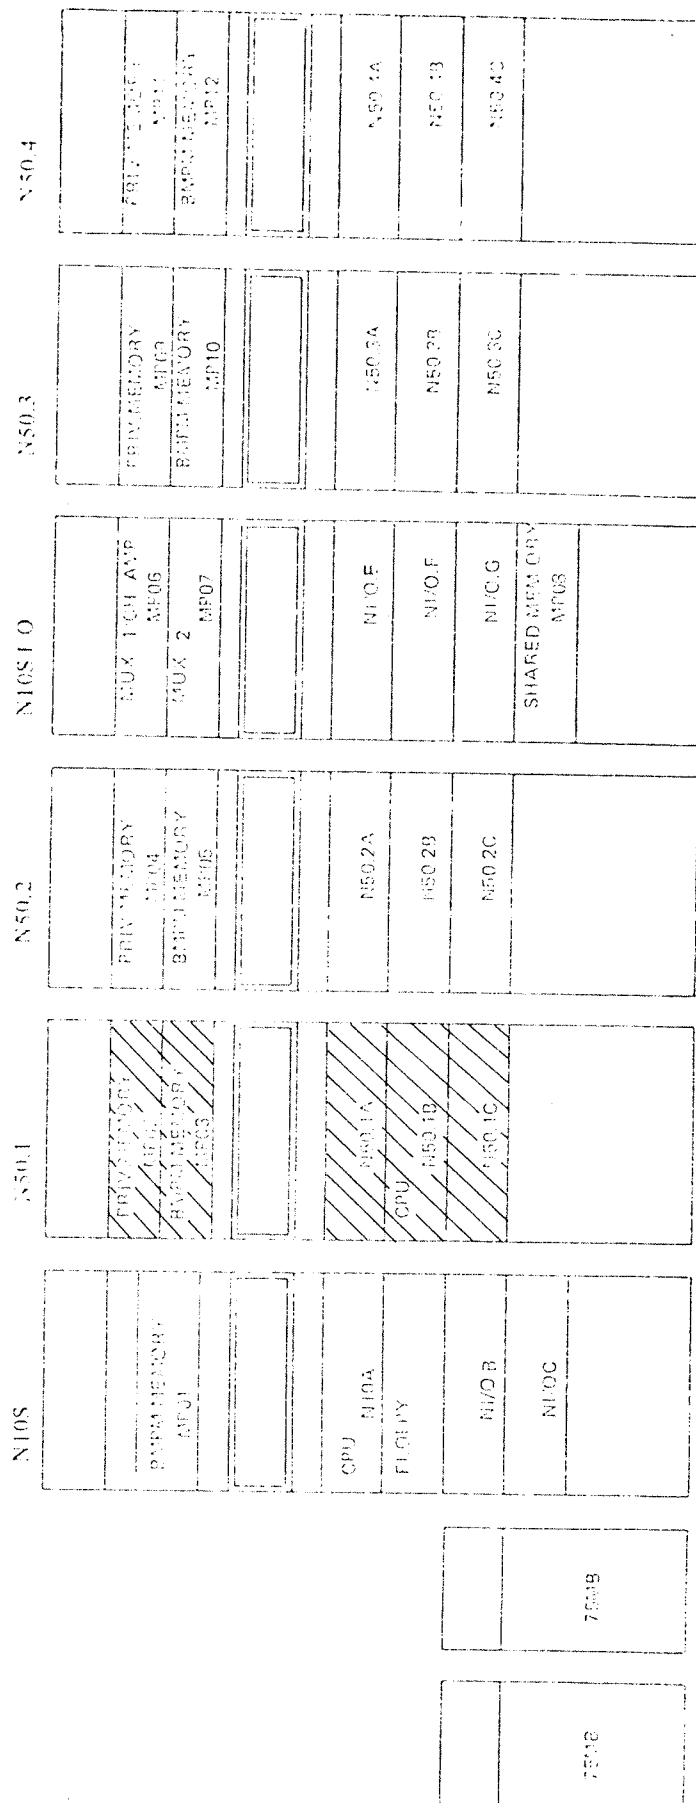 75MB
75MB
N10S
BMPM MEMORY
MP01
CPU
N10A
FLOPPY
NI/O B
NI/OC
N50.1
PRIV MEMORY
BMPM MEMORY
MP03
N50.1A
CPU
N50.1B
N50.1C
N50.2
PRIV MEMORY
MP04
BMPM MEMORY
MP05
N50.2A
N50.2B
N50.2C
N10S I O
MUX 1
MP06
MUX 2
MP07
NI/O.F
NI/O.G
SHARED MEMORY
MP08
N50.3
PRIV.MEMORY
MP09
BMPM MEMORY
MP10
N50.3A
N50.3B
N50.3C
N50.4
PRIV MEMORY
BMPM MEMORY
MP12
N50.4A
N50.4B
N50.4C